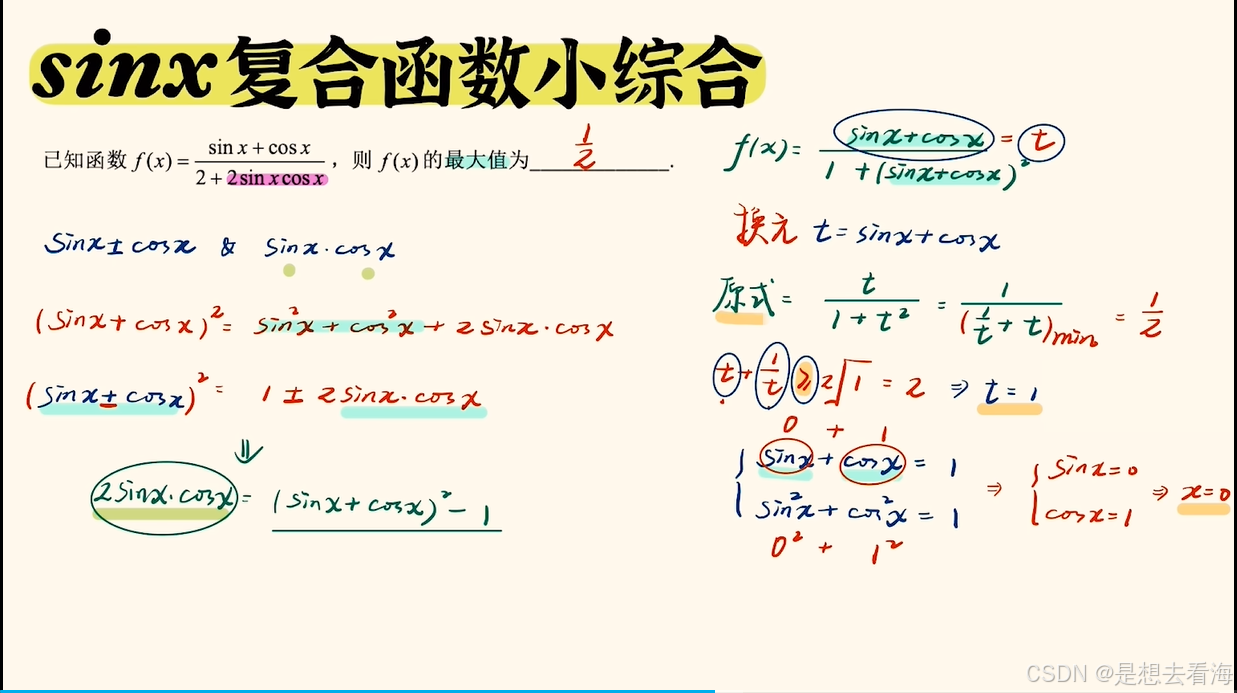 sinx复合函数小综合
已知函数 f(x) = (sin x + cos x)/(2 + 2sin x cos x) ,则 f(x) 的最大值为 1/2 .
sinx ± cosx & sinx · cosx
(sinx + cosx)² = sin²x + cos²x + 2sinx · cosx
(sinx ± cosx)² = 1 ± 2sinx · cosx
⇓
2sinx · cosx = (sinx + cosx)² − 1
f(x) = (sinx + cosx)/(1 + (sinx + cosx)²) = t
换元 t = sinx + cosx
原式 = t/(1 + t²) = 1/(1/t + t)min = 1/2
t + 1/t ≥ 2√1 = 2 ⇒ t = 1
0 + 1
{ sinx + cosx = 1
sin²x + cos²x = 1 ⇒ { sinx = 0
cosx = 1 ⇒ x = 0
0² + 1²
CSDN @是想去看海